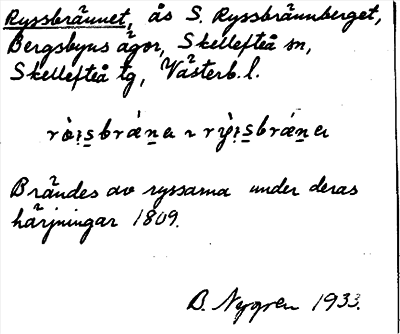 Ryssbrännet, ås S. Ryssbrännberget,
Bergsbyns ägor, Skellefteå sn,
Skellefteå tg, Västerb. l.
Brändes av ryssarna under deras
härjningar 1809.
B. Nygren 1933.